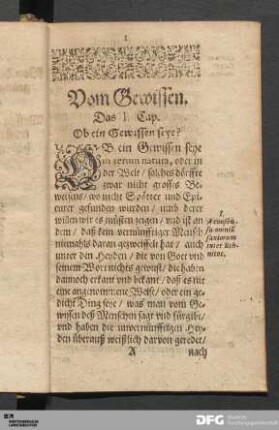 1.
Vom Gewissen.
Das 1. Cap.
Ob ein Gewissen seye?
OB ein Gewissen seye
in rerum natura, oder in
der Welt / solches dörffte
zwar nicht grosses Be-
weisens / wo nicht Spötter und Epi-
curer gefunden würden / umb derer
willen wir es müssen zeigen / und ist an
dem / daß kein vernünfftiger Mensch
niemahls daran gezweiffelt hat / auch
unter den Heyden / die von Gott und
seinem Wort nichts gewust / die haben
dannoch erkant und bekant / daß es nit
eine angenommene Weise / oder ein ge-
dicht Ding seye / was man vom Ge-
wissen deß Menschen sagt und fürgibt /
und haben die unvernünfftigen Hey-
den überauß weißlich darvon geredet /
A nach
1.
omniū
inter
DFG